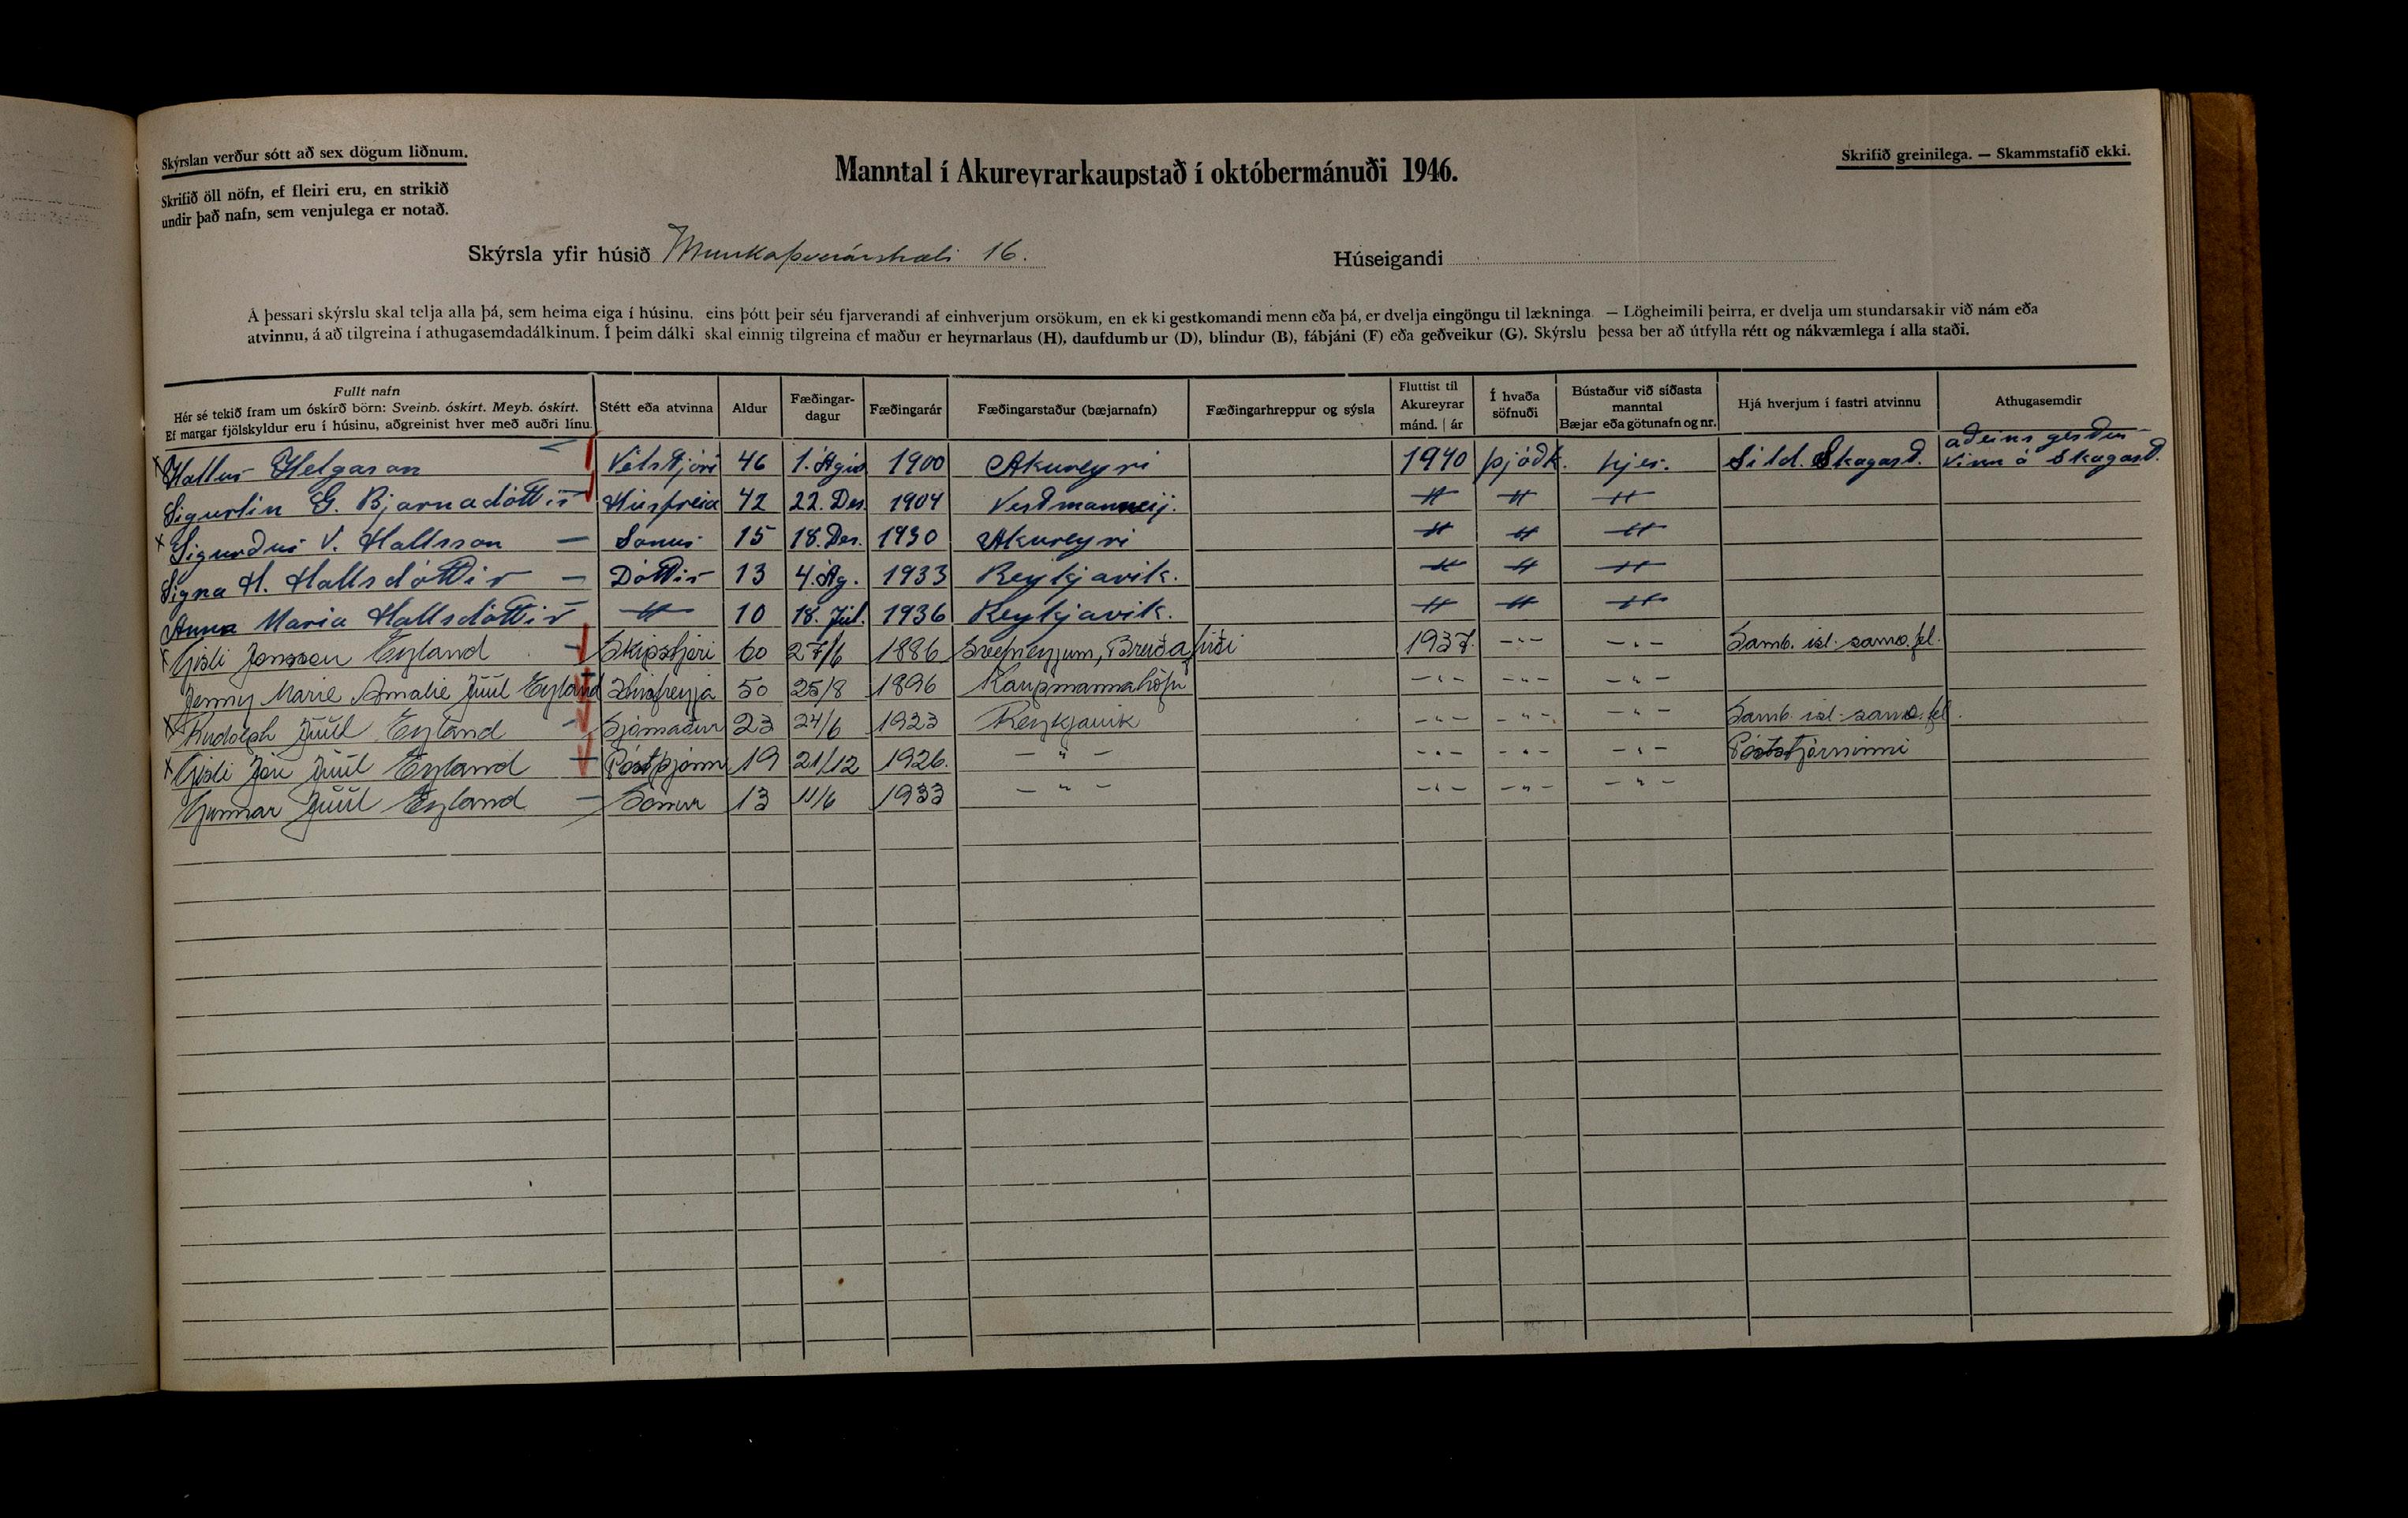 Skýrslan verður sótt að sex dögum liðnum.
Skrifið öll nöfn, ef fleiri eru, en strikið
undir það nafn, sem venjulega er notað.
Manntal í Akureyrarkaupstað í októbermánuði 1946.
Skrifið greinilega. — Skammstafið ekki.
Skýrsla yfir húsið Munkaþverárstræti 16.
Húseigandi
Á þessari skýrslu skal telja alla þá, sem heima eiga í húsinu, eins þótt þeir séu fjarverandi af einhverjum orsökum, en ekki gestkomandi menn eða þá, er dvelja eingöngu til lækninga. — Lögheimili þeirra, er dvelja um stundarsakir við nám eða
atvinnu, á að tilgreina í athugasemdadálkinum. Í þeim dálki skal einnig tilgreina ef maður er heyrnarlaus (H), daufdumbur (D), blindur (B), fábjáni (F) eða geðveikur (G). Skýrslu þessa ber að útfylla rétt og nákvæmlega í alla staði.
Fullt nafn
Hér sé tekið fram um óskírð börn: Sveinb. óskírt. Meyb. óskírt.
Ef margar fjölskyldur eru í húsinu, aðgreinist hver með auðri línu.
Stétt eða atvinna
Aldur
Fæðingar-
dagur
Fæðingarár
Fæðingarstaður (bæjarnafn)
Fæðingarhreppur og sýsla
Fluttist til
Akureyrar
mánd. | ár
Í hvaða
söfnuði
Bústaður við síðasta
manntal
Bæjar eða götunafn og nr.
Hjá hverjum í fastri atvinnu
Athugasemdir
Hallur Helgason Vélstjóri 46 1. Ágús 1900 Akureyri 1940 þjóðk. hjer. Síld. Skagast. aðeins
vinn á Skagast.
Sigurlin G. Bjarnadóttir Húsfreia 42 22. Des 1904 Vestmanneij. -〃- -〃- -〃-
Sigurður V. Hallsson Sonur 15 18. Des. 1930 Akureyri -〃- -〃- -〃-
Signa H. Hallsdóttir Dóttir 13 4. Ág. 1933 Reykjavik. -〃- -〃- -〃-
Anna Maria Hallsdóttir -〃- 10 18. Júl. 1936 Reykjavik. -〃- -〃- -〃-
Gísli Jónsson Eyland Skipstjóri 60 27/6 1886 Svefneyjum, Breiðafirði 1937 -〃- -〃- Samb. ísl. samv. fél.
Jenny Marie Amalie Júúl Eyland Húsfreyja 50 25/8 1896 Kaupmannahöfn -〃- -〃- -〃-
Rudolph Júúl Eyland Sjómaður 23 24/6 1923 Reykjavík -〃- -〃- -〃- Samb. ísl. samv. fél.
Gísli Jón Júúl Eyland Póstþjónn 19 21/12 1926. -〃- -〃- -〃- -〃- Póststjórninni
Gunnar Júúl Eyland Sonur 13 11/6 1933 -〃- -〃- -〃- -〃-